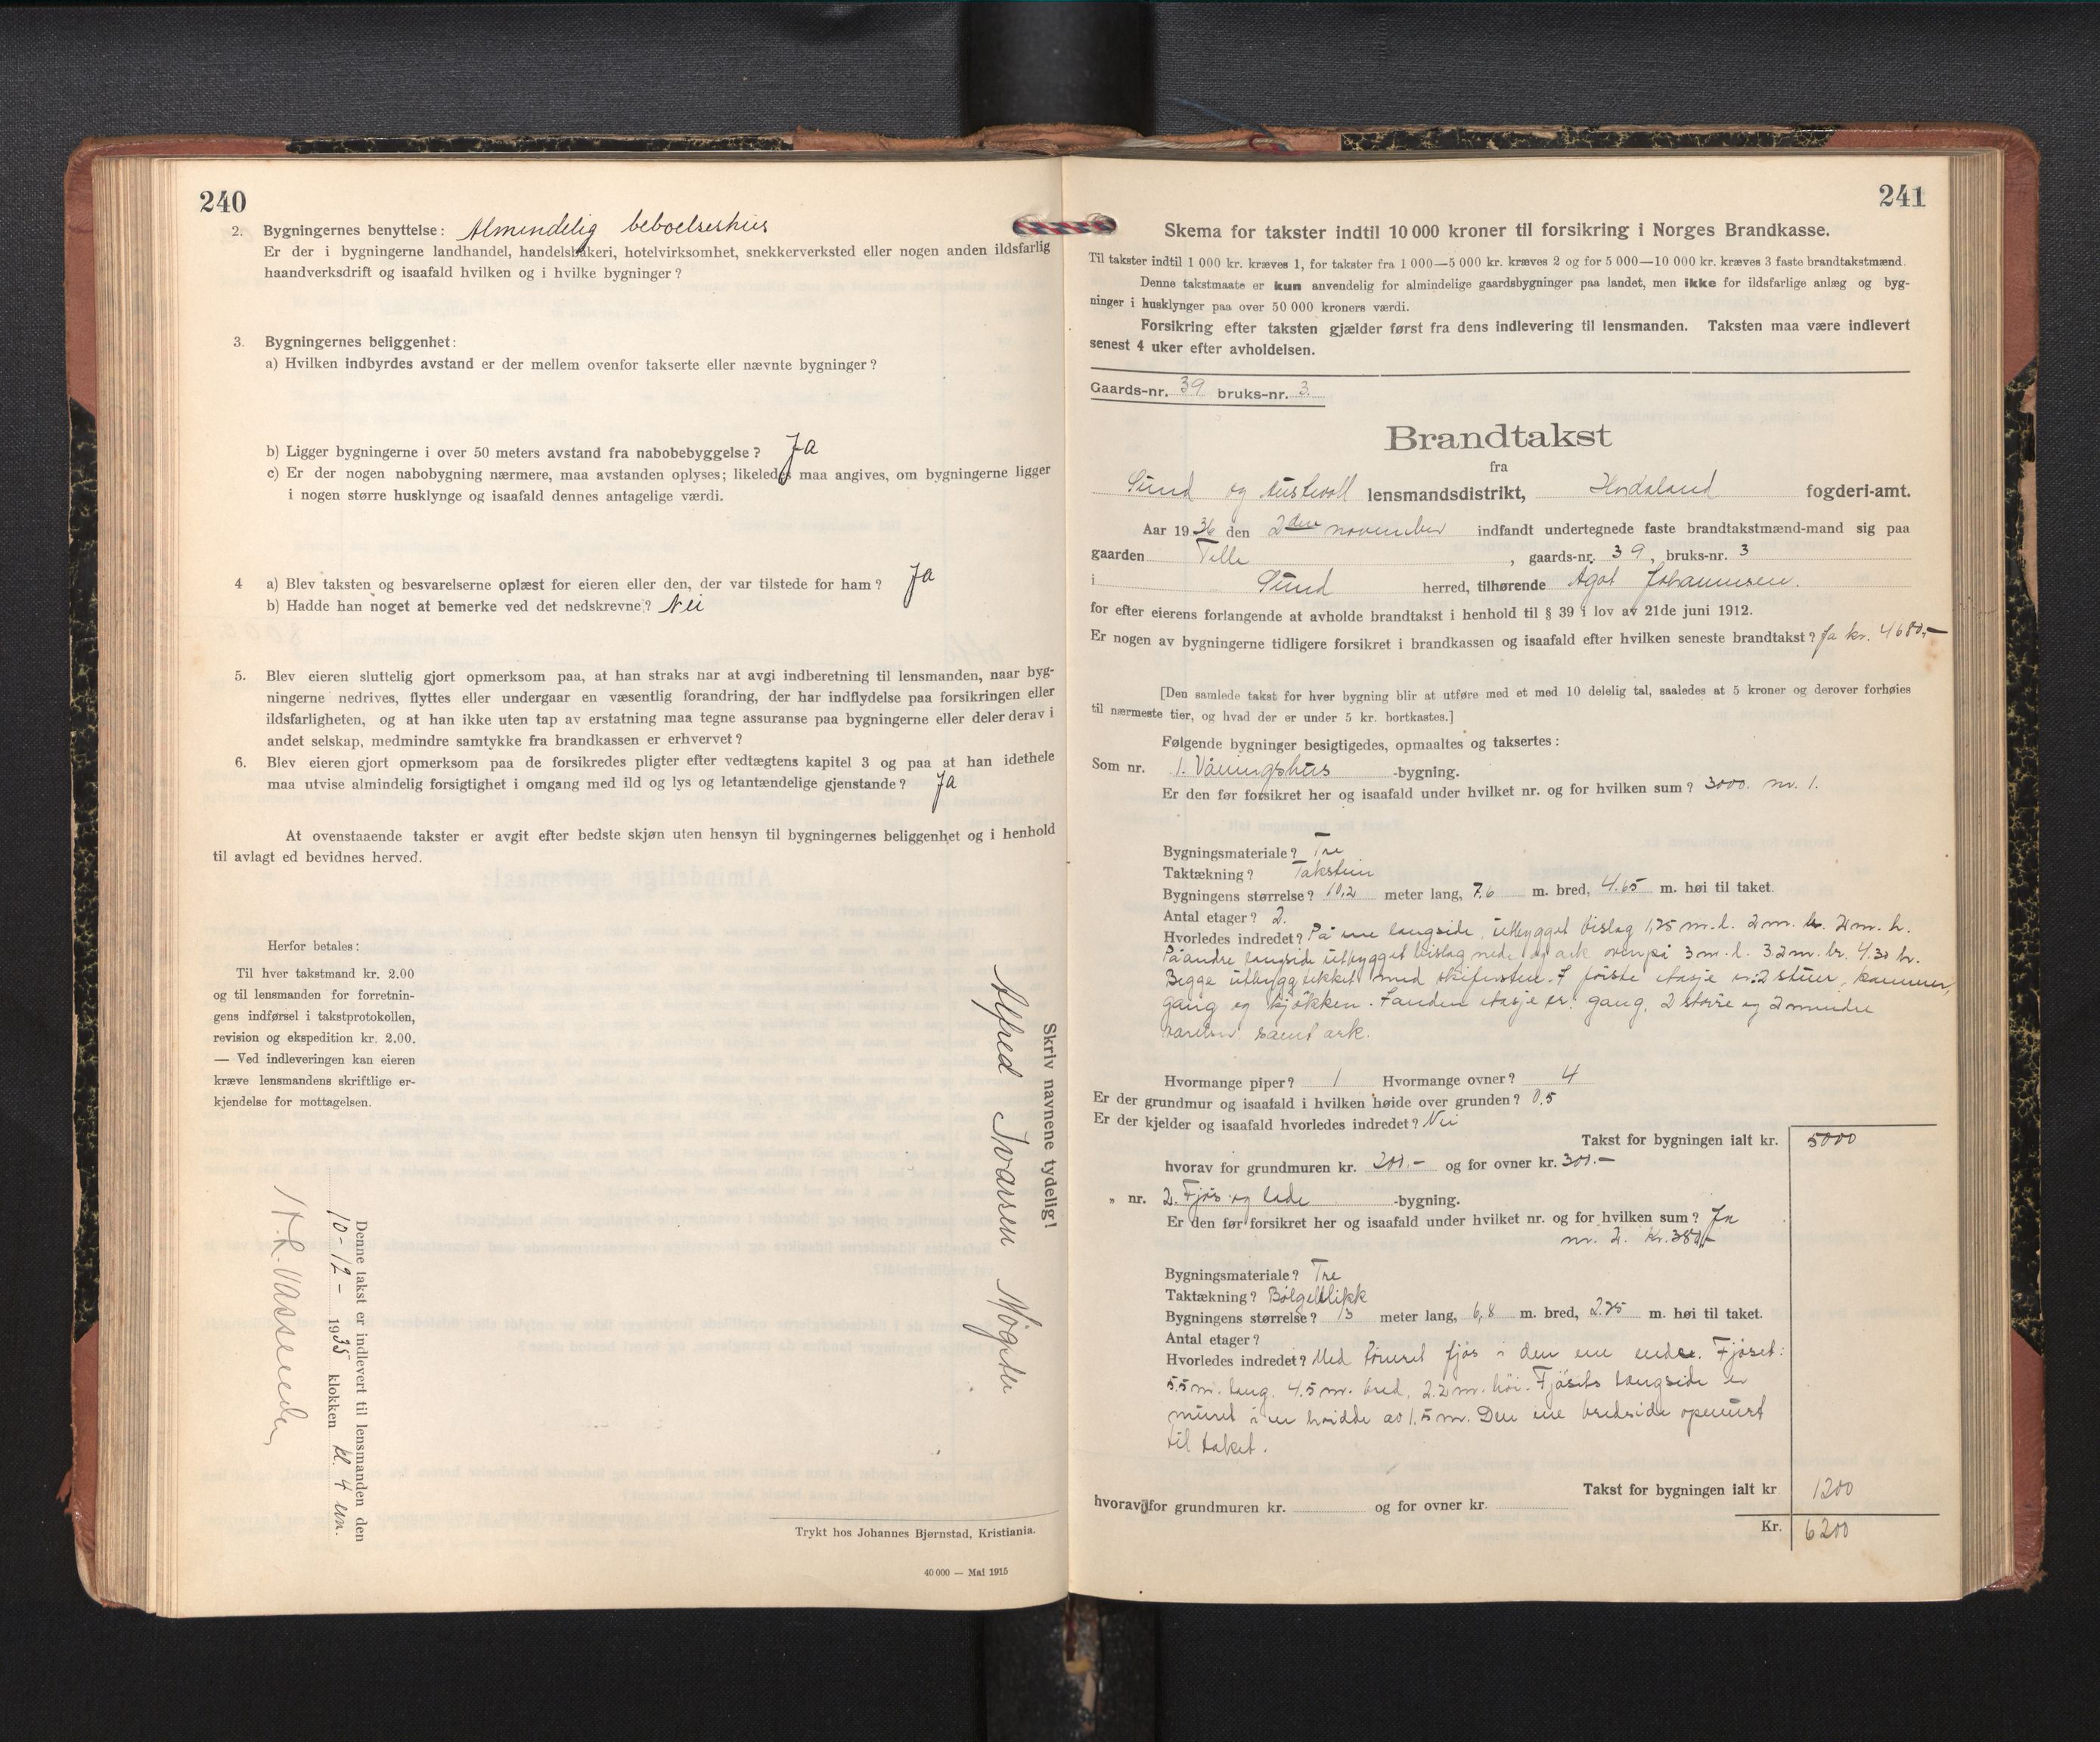 240
2. Bygningernes benyttelse: Almindelig beboelseshus
Er der i bygningerne landhandel, handelsbakeri, hotelvirksomhet, snekkerverksted eller nogen anden ildsfarlig
haandverksdrift og isaafald hvilken og i hvilke bygninger?
3. Bygningernes beliggenhet:
a) Hvilken indbyrdes avstand er der mellem ovenfor takserte eller nævnte bygninger?
b) Ligger bygningerne i over 50 meters avstand fra nabobebyggelse? Ja
c) Er der nogen nabobygning nærmere, maa avstanden oplyses; likeledes maa angives, om bygningerne ligger
i nogen større husklynge og isaafald dennes antagelige værdi.
4 a) Blev taksten og besvarelserne oplæst for eieren eller den, der var tilstede for ham? Ja
b) Hadde han noget at bemerke ved det nedskrevne? Nei
5. Blev eieren sluttelig gjort opmerksom paa, at han straks har at avgi indberetning til lensmanden, naar byg-
ningerne nedrives, flyttes eller undergaar en væsentlig forandring, der har indflydelse paa forsikringen eller
ildsfarligheten, og at han ikke uten tap av erstatning maa tegne assuranse paa bygningerne eller deler derav i
andet selskap, medmindre samtykke fra brandkassen er erhvervet?
6. Blev eieren gjort opmerksom paa de forsikredes pligter efter vedtægtens kapitel 3 og paa at han idethele
maa utvise almindelig forsigtighet i omgang med ild og lys og letantændelige gjenstande? Ja
At ovenstaaende takster er avgit efter bedste skjøn uten hensyn til bygningernes beliggenhet og i henhold
til avlagt ed bevidnes herved.
Herfor betales:
Til hver takstmand kr. 2.00
og til lensmanden for forretnin-
gens indførsel i takstprotokollen,
revision og ekspedition kr. 2.00.
— Ved indleveringen kan eieren
kræve lensmandens skriftlige er-
kjendelse for mottagelsen.
Skriv navnene tydelig!
Alfred Ivarsen Møgster
Denne takst er indlevert til lensmanden den
10-12- 1935 klokken kl. 4 em.
Trykt hos Johannes Bjørnstad, Kristiania.
40 000 — Mai 1915
241
Skema for takster indtil 10 000 kroner til forsikring i Norges Brandkasse.
Til takster indtil 1 000 kr. kræves 1, for takster fra 1 000—5 000 kr. kræves 2 og for 5 000—10 000 kr. kræves 3 faste brandtakstmænd.
Denne takstmaate er kun anvendelig for almindelige gaardsbygninger paa landet, men ikke for ildsfarlige anlæg og byg-
ninger i husklynger paa over 50 000 kroners værdi.
Forsikring efter taksten gjælder først fra dens indlevering til lensmanden. Taksten maa være indlevert
senest 4 uker efter avholdelsen.
Gaards-nr. 39 bruks-nr. 3.
Brandtakst
fra
Sund og Austevoll lensmandsdistrikt, Hordaland fogderi-amt.
Aar 1936 den 2den november indfandt undertegnede faste brandtakstmænd-mand sig paa
gaarden Telle, gaards-nr. 39, bruks-nr. 3
i Sund herred, tilhørende Agat Johannesen.
for efter eierens forlangende at avholde brandtakst i henhold til § 39 i lov av 21de juni 1912.
Er nogen av bygningerne tidligere forsikret i brandkassen og isaafald efter hvilken seneste brandtakst? Ja kr. 4680,-
[Den samlede takst for hver bygning blir at utføre med et med 10 delelig tal, saaledes at 5 kroner og derover forhøies
til nærmeste tier, og hvad der er under 5 kr. bortkastes.]
Følgende bygninger besigtigedes, opmaaltes og taksertes:
Som nr. 1. Våningshus -bygning.
Er den før forsikret her og isaafald under hvilket nr. og for hvilken sum? 3000. nr. 1.
Bygningsmateriale? Tre
Taktækning? Takstein
Bygningens størrelse? 10,2 meter lang, 7.6 m. bred, 4.65 m. høi til taket.
Antal etager? 2.
Hvorledes indredet? På ene langside utbygget bislag 1,25 m.l. 2m. br. 2m. h.
På andre langside utbygget bislag nede og ark ovenpå 3 m.l. 3.2m. br. 4.30 h.
Begge utbygg tekket med skifersten. I første etasje er: 2 stuer, kammer,
gang og kjøkken. I anden etasje er: gang, 2 større og 2 mindre
værelser samt ark.
Hvormange piper? 1 Hvormange ovner? 4
Er der grundmur og isaafald i hvilken høide over grunden? 0,5
Er der kjelder og isaafald hvorledes indredet? Nei
Takst for bygningen ialt kr. 5000
hvorav for grundmuren kr. 200.- og for ovner kr. 300.-
„ nr. 2. Fjøs og lade -bygning.
Er den før forsikret her og isaafald under hvilket nr. og for hvilken sum? Ja
nr. 2. kr. 380,-
Bygningsmateriale? Tre
Taktækning? Bølgeblikk
Bygningens størrelse? 13 meter lang, 6,8 m. bred, 2.75 m. høi til taket.
Antal etager?
Hvorledes indredet? Med tømret fjøs i den ene ende. Fjøset:
5.5 m. lang. 4.5 m. bred, 2.2 m. høi. Fjøsets langside er
muret i en høidde av 1,5 m. Den ene bredside opmurt
til taket.
Takst for bygningen ialt kr 1200
hvorav for grundmuren kr. og for ovner kr.
Kr. 6200